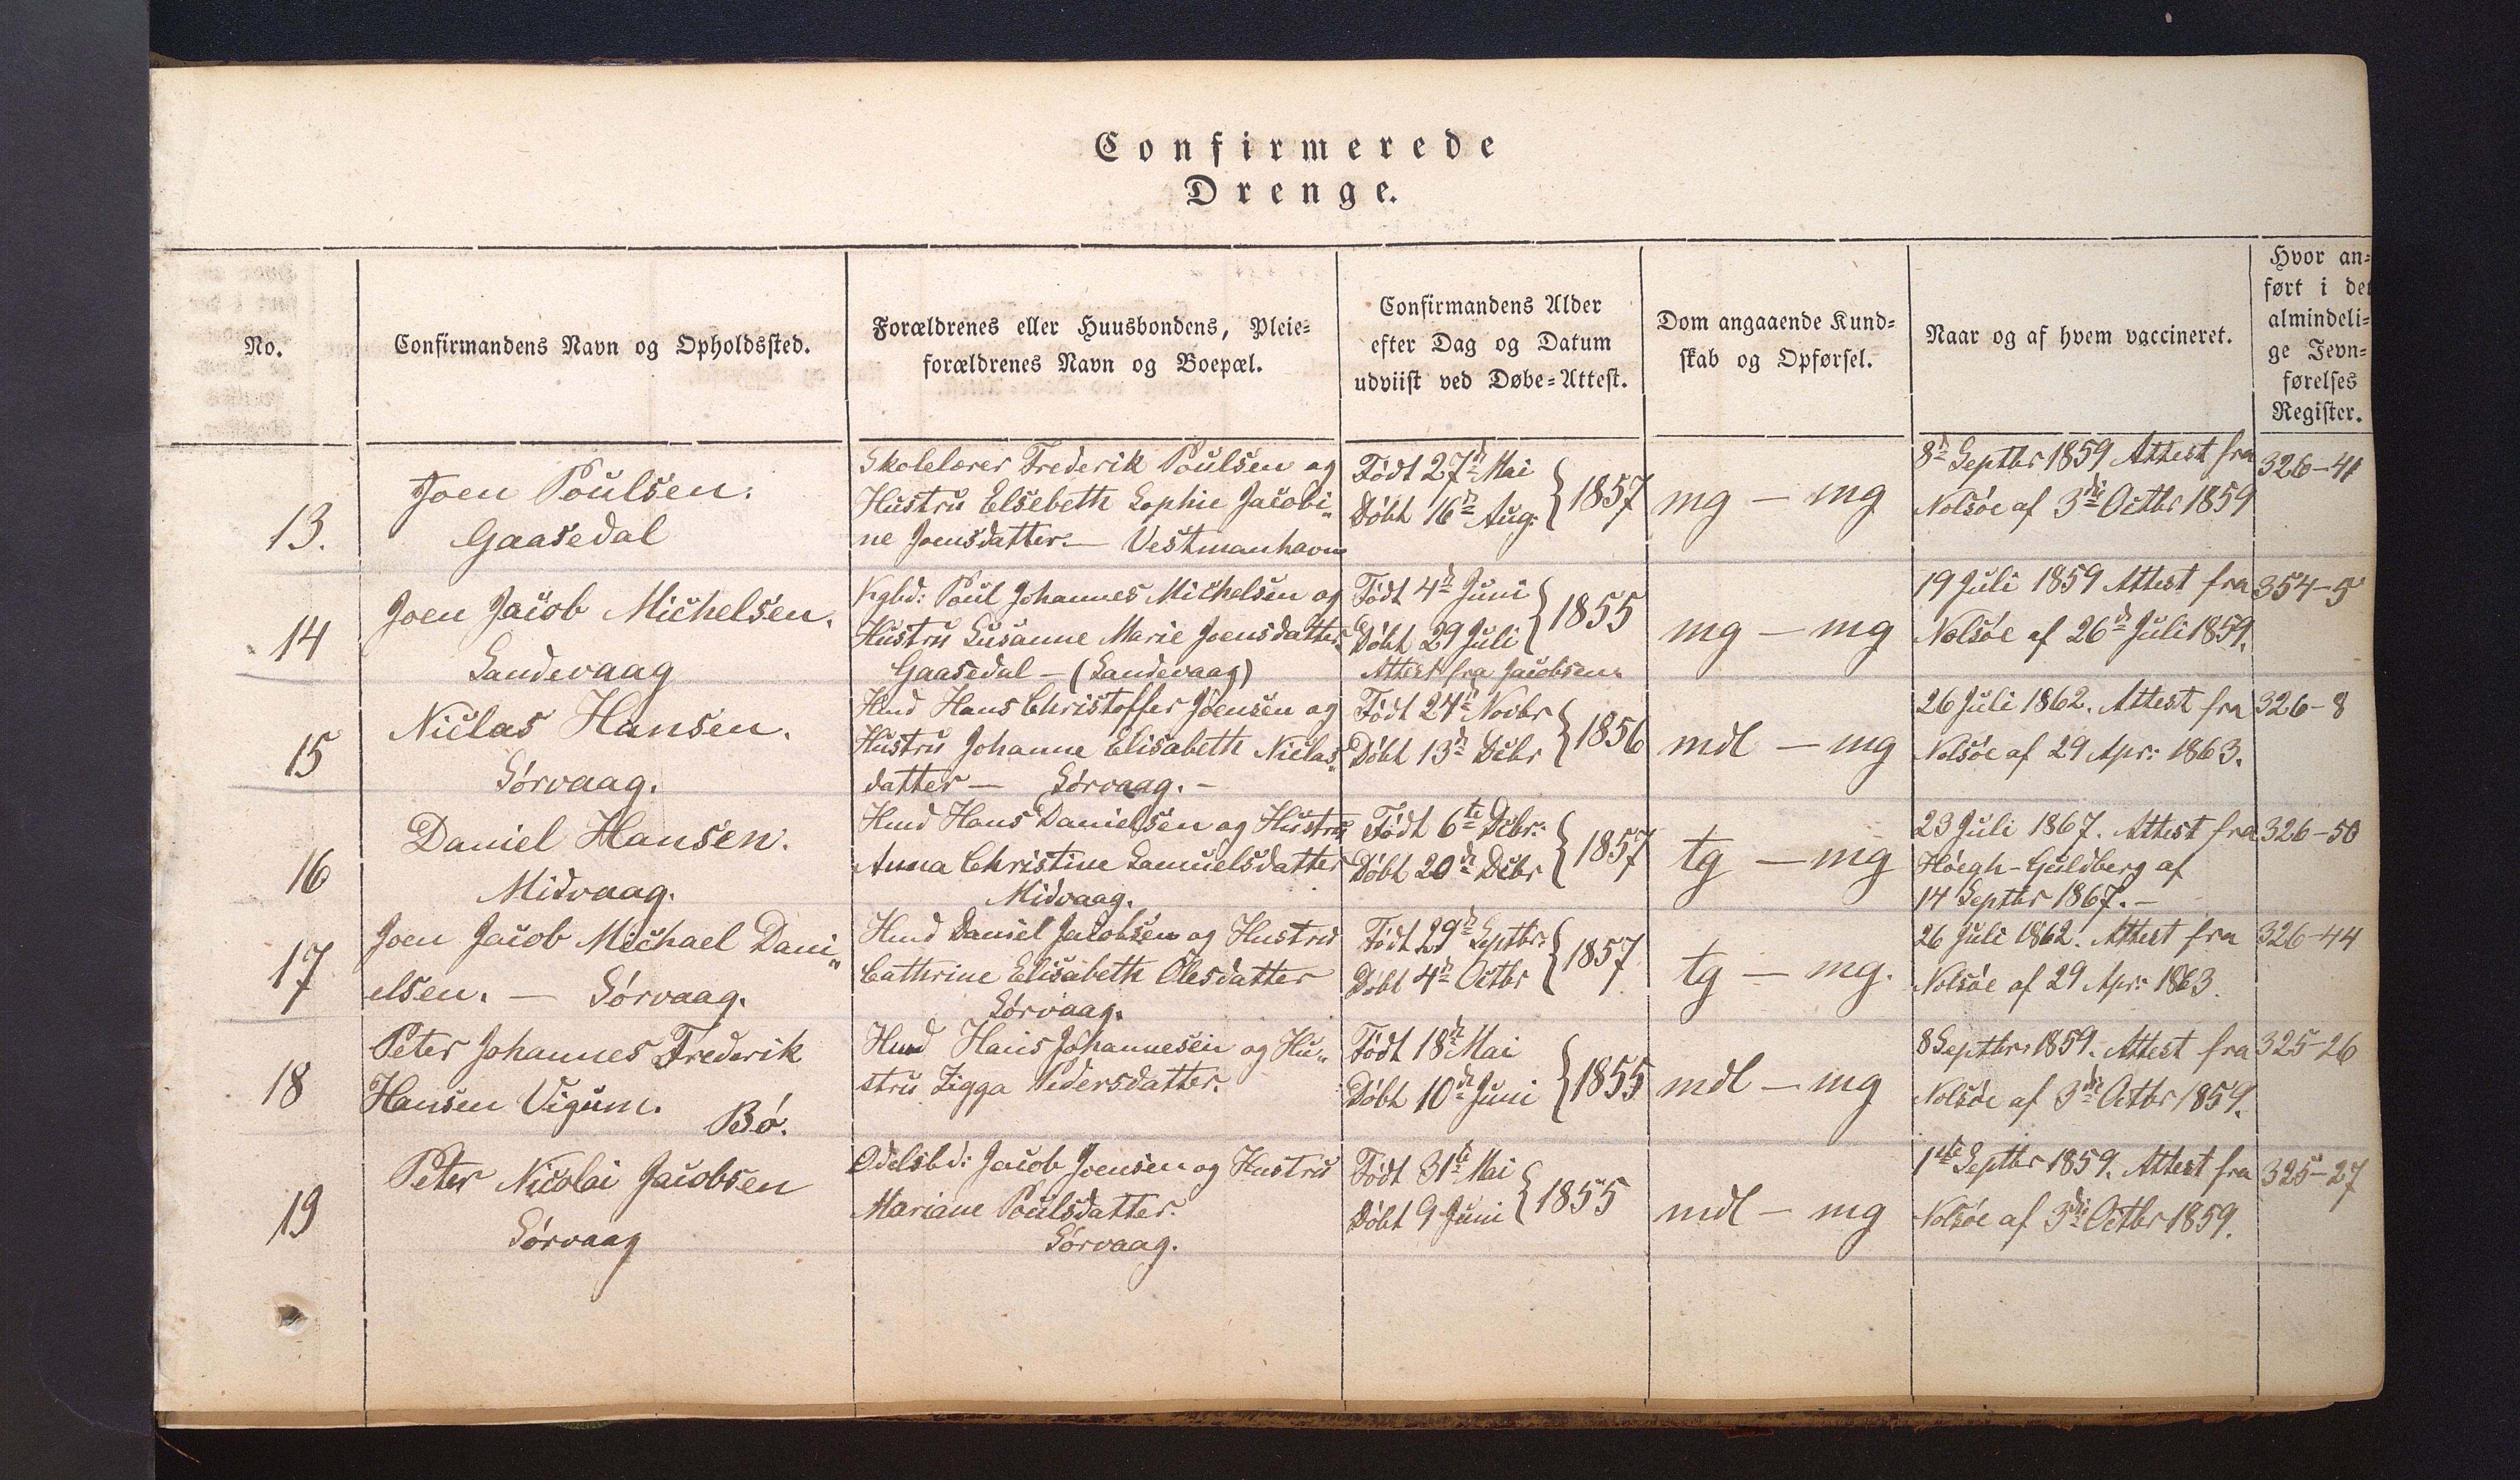 Confirmerede
Drenge.
No.
Confirmandens Navn og Opholdssted.
Forældrenes eller Huusbondens, Pleie-
forældrenes Navn og Boepæl.
Confirmandens Alder
efter Dag og Datum
udviist ved Døbe-Attest.
Dom angaaende Kund-
skab og Opførsel.
Naar og af hvem vaccineret.
Hvor an-
ført i det
almindeli-
ge Jevn-
førelses
Register.
13.
Joen Poulsen.
Gaasedal
Skolelærer Frederik Poulsen og
Hustru Elsebeth Sophie Jacobi-
ne Joensdatter. — Vestmanhavn
Født 27de Mai
Døbt 16de Aug: } 1857
mg — mg
8de Septbr 1859 Attest fra
Nolsøe af 3die Octbr 1859
326-41
14
Joen Jacob Michelsen.
Sandevaag
Kgbd: Poul Johannes Michelsen og
Hustru Susanne Marie Joensdatter
Gaasedal — (Sandevaag)
Født 4de Juni
Døbt 29 Juli } 1855
Attest fra Jacobsen.
mg — mg
19 Juli 1859 Attest fra
Nolsøe af 26de Juli 1859.
354-5
15
Niclas Hansen.
Sørvaag.
Hmd Hans Christoffer Joensen og
Hustru Johanne Elisabeth Niclas-
datter — Sørvaag. —
Født 24de Novbr
Døbt 13de Debr } 1856
mdl — mg
26 Juli 1862. Attest fra
Nolsøe af 29 Apr: 1863.
326-8
16
Daniel Hansen.
Midvaag.
Hmd Hans Danielsen og Hustru
Anna Christine Samuelsdatter
Midvaag.
Født 6te Debr:
Døbt 20de Debr } 1857
tg — mg
23 Juli 1867. Attest fra
Høegh-Guldberg af
14 Septbr 1867. —
326-50
17
Joen Jacob Michael Dani-
elsen. — Sørvaag.
Hmd Daniel Jacobsen og Hustru
Cathrine Elisabeth Olesdatter
Sørvaag.
Født 29de Septbr:
Døbt 4de Octbr } 1857
tg — mg.
26 Juli 1862. Attest fra
Nolsøe af 29 Apr: 1863.
326-44
18
Peter Johannes Frederik
Hansen Vigum.
Bø.
Hmd Hans Johannesen og Hu-
stru Zigga Pedersdatter.
Født 18de Mai
Døbt 10de Juni } 1855
mdl — mg
8 Septbr: 1859. Attest fra
Nolsøe af 3die Octbr 1859.
325-26
19
Peter Nicolai Jacobsen
Sørvaag
Odelsbd: Jacob Joensen og Hustru
Mariane Poulsdatter.
Sørvaag.
Født 31te Mai
Døbt 9 Juni } 1855
mdl — mg
1ste Septbr 1859. Attest fra
Nolsøe af 3die Octbr 1859.
325-27